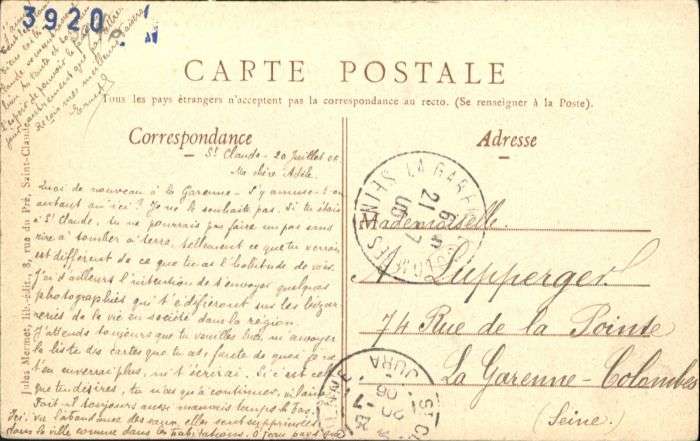 3920
CARTE POSTALE
Tous les pays étrangers n'acceptent pas la correspondance au recto. (Se renseigner à la Poste).
Correspondance
St Claude - 20 Juillet
Ma chère Adèle
Quoi de nouveau à la Garenne - S'y amuse-t-on
autant qu'ici? Je ne le souhaite pas. Si tu étais
à St Claude, tu ne pourrais pas faire un pas sans
rire à tomber à terre, tellement ce que tu verrais
est différent de ce que tu as l'habitude de voir.
J'ai d'ailleurs l'intention de t'envoyer quelques
photographies qui t'édifieront sur les bizar
reries de la vie en société dans la région.
J'attends toujours que tu veuilles bien m'envoyer
la liste des cartes que tu as, faute de quoi je ne
t'en enverrai plus, ni t'écrirai. Si c'est cela
que tu désires, tu n'as qu'à continuer, vilaine
Fait-il toujours aussi mauvais temps là-bas.
Ici, vu l'abondance des eaux, elles sont supprimées
dans la ville comme dans les habitations. O
Ernest
Jules Mermet, lib.-édit., 8, rue du Pré, Saint-Claude
Adresse
LA GARENNE-COLOMBES
21 - 7
SEINE
Mademoiselle
A. Lupperger
74 Rue de la Pointe
La Garenne-Colombes
(Seine)
ST CLAUDE
20
06
JURA